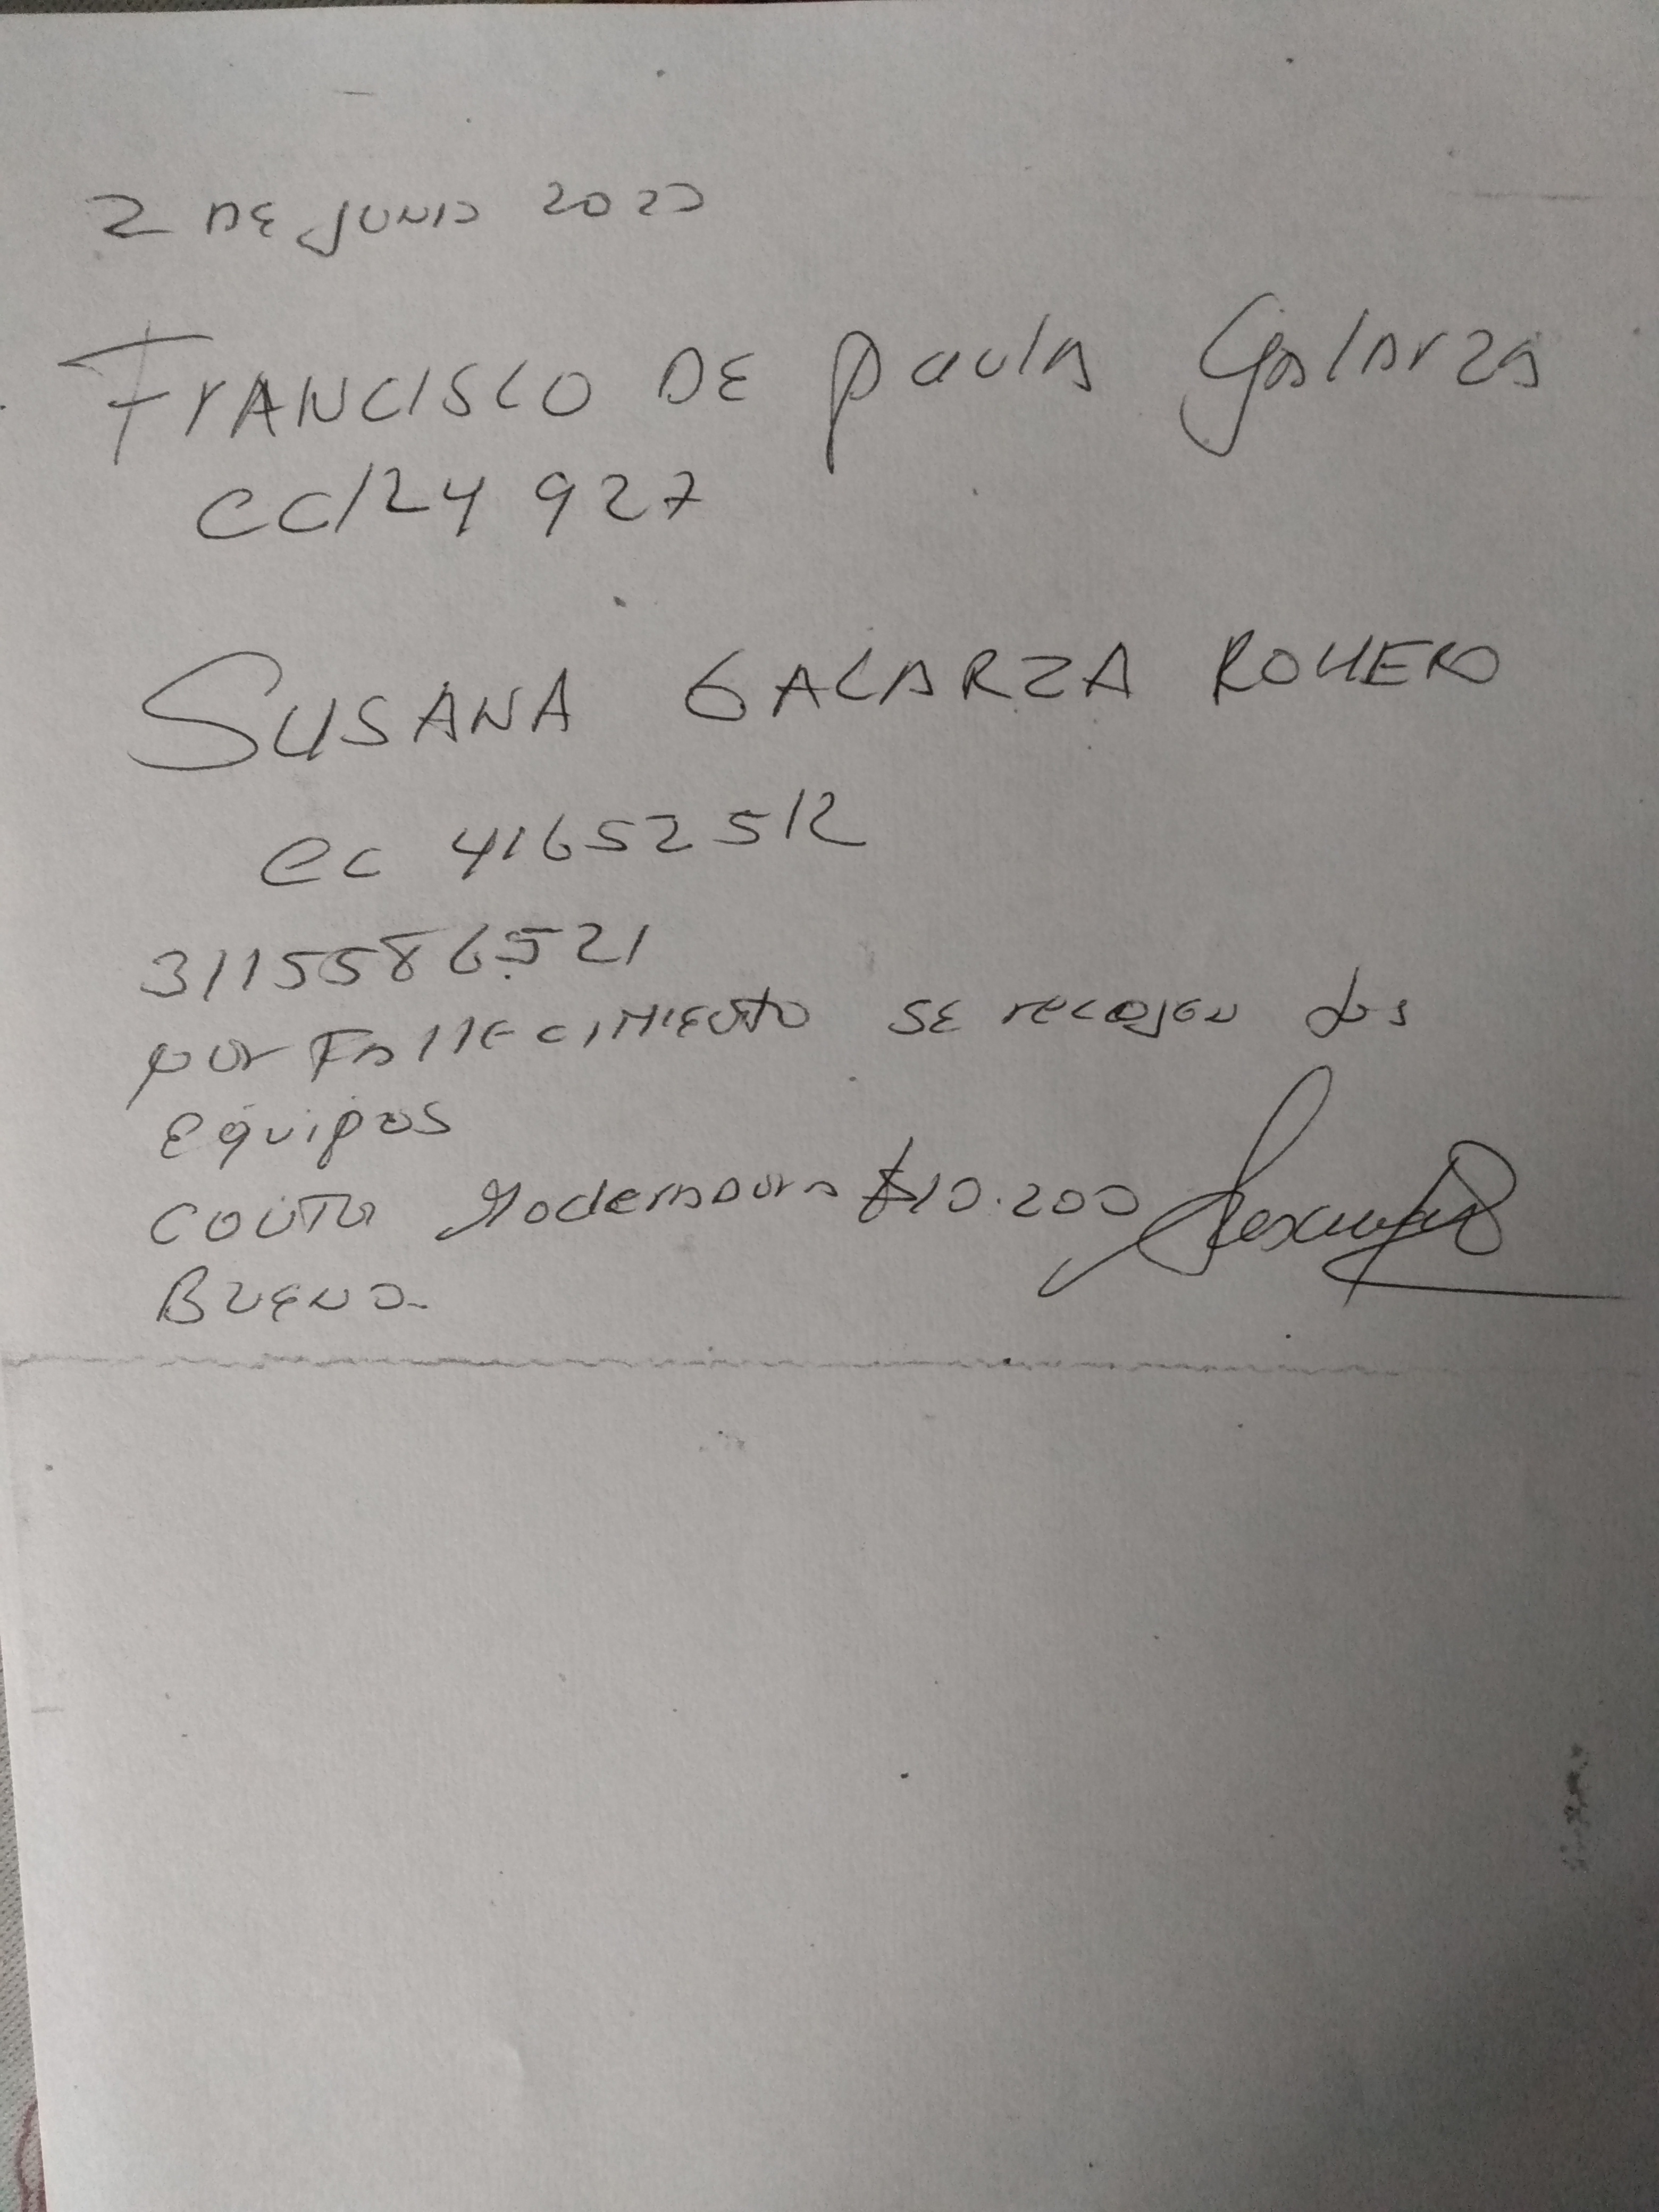 2 DE JUNIO 2020
FRANCISCO DE paula Galarza
CC 124 927
SUSANA GALARZA ROMERO
CC 41652512
3115586521
por FallECIMIENTO SE recojen dos
Equipos
COUTA Moderadora $10.200
BUENO.